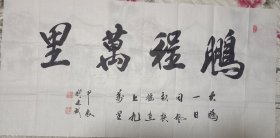 鵬程萬里
大鵬
一日
同風
起扶
搖直
上九
萬里